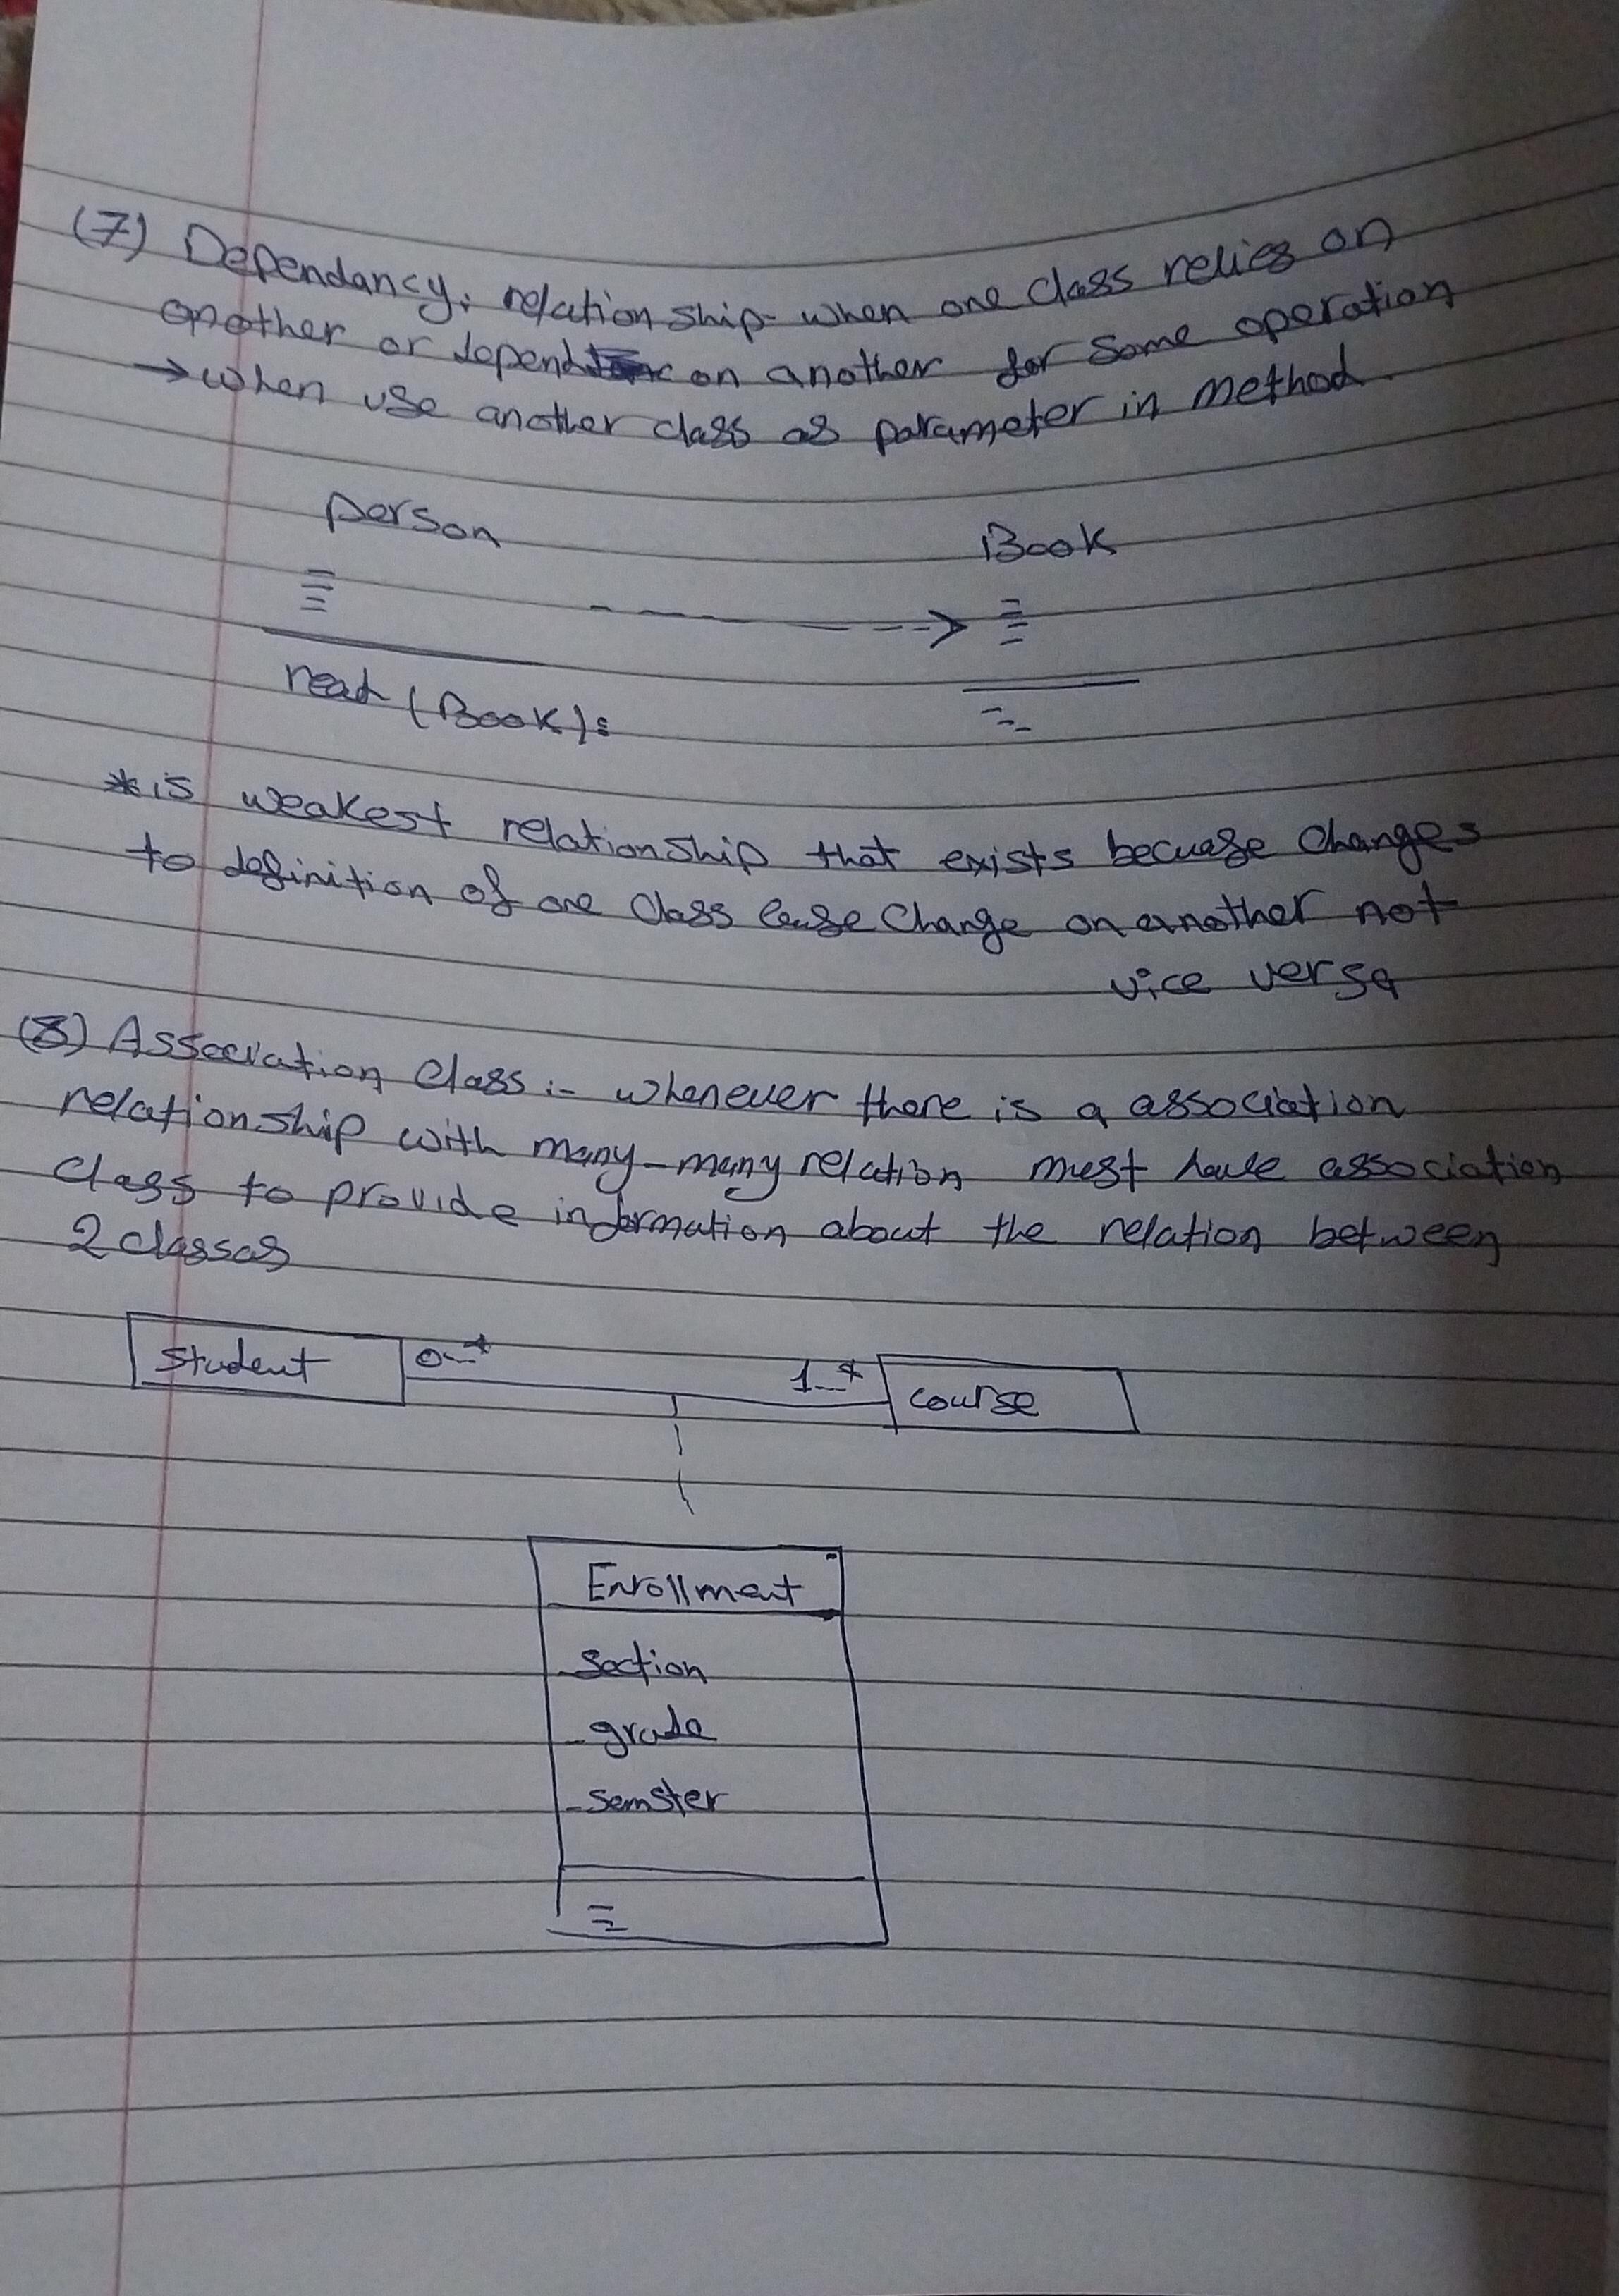 (7) Dependancy: relationship when one class relies on
another or depend on another for some operation
→ when use another class as parameter in method.
person
Book
read (Book):
*is weakest relationship that exists becuase changes
to definition of one class cause change on another not
vice versa
(8) Association Class :- whenever there is a association
relationship with many-many relation must have association
class to provide information about the relation between
2 classes
Student 0..* 1..* course
Enrollment
-section
-grade
-semster